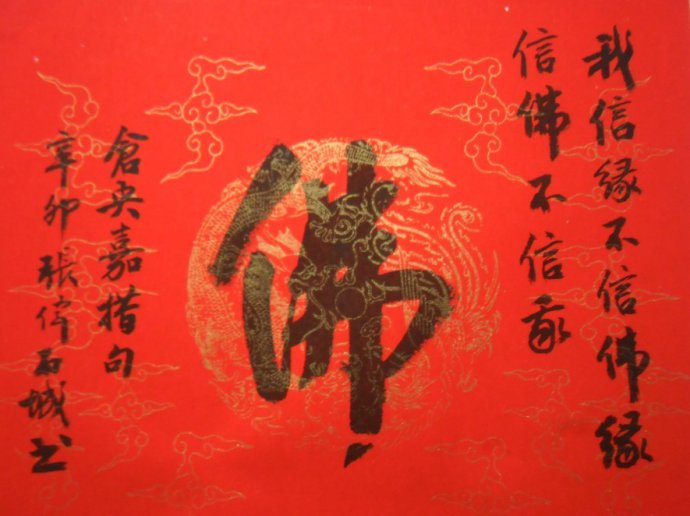 我信缘不信佛缘
信佛不信我
佛
倉央嘉措句
辛卯張偉石城书